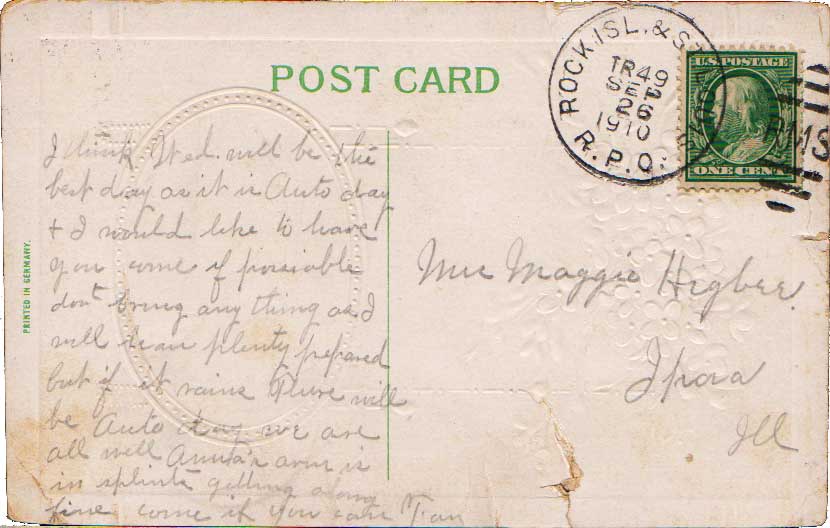 POST CARD
ROCK ISL. & ST. LOUIS
TR 49
SEP
26
1910
R.P.O.
U.S. POSTAGE
ONE CENT
RMS
PRINTED IN GERMANY.
I think Wed. will be the
best day as it is Auto day
+ I would like to have
you come if possiable
don't bring any thing as I
will have plenty prepared
but if it rains Thurs will
be Auto day we are
all well Anna's arm is
in splints getting along
fine come if you can
Maggie Higbee.
Ipava
Ill